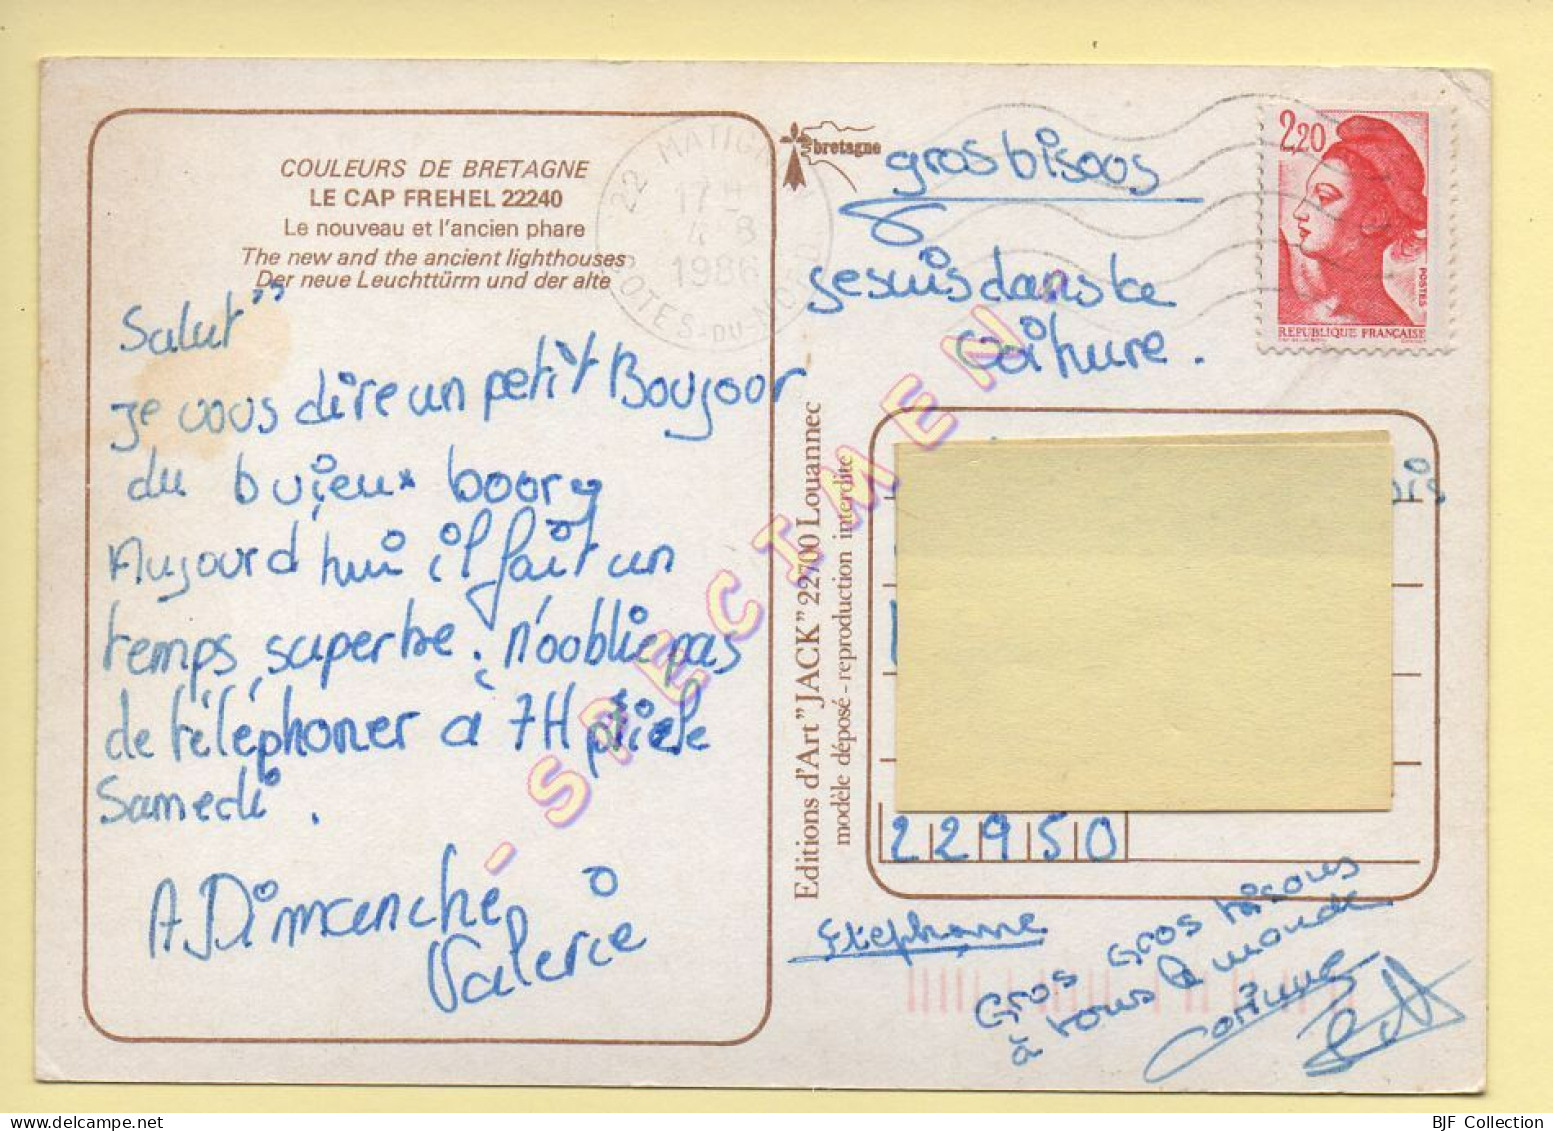 COULEURS DE BRETAGNE
LE CAP FREHEL 22240
Le nouveau et l'ancien phare
The new and the ancient lighthouses
Der neue Leuchttürm und der alte
Salut
je vous dire un petit Boujoor
du buieux boorg
Aujourd hui il fait un
temps superbe. n'ooblie pas
de téléphoner à 7H pile le
Samedi.
A Dimanche
Valerie
22 MATIGNON
17 H
4 - 8
1986
COTES-DU-NORD
bretagne
gros bisoos
je suis dans ta
voiture.
2,20
POSTES
REPUBLIQUE FRANÇAISE
Editions d'Art "JACK" 22700 Louannec
modèle déposé - reproduction interdite
- SPECIMEN -
22950
Stephanne
Gros Gros bisous
à tous le monde
Corinne
BJF Collection